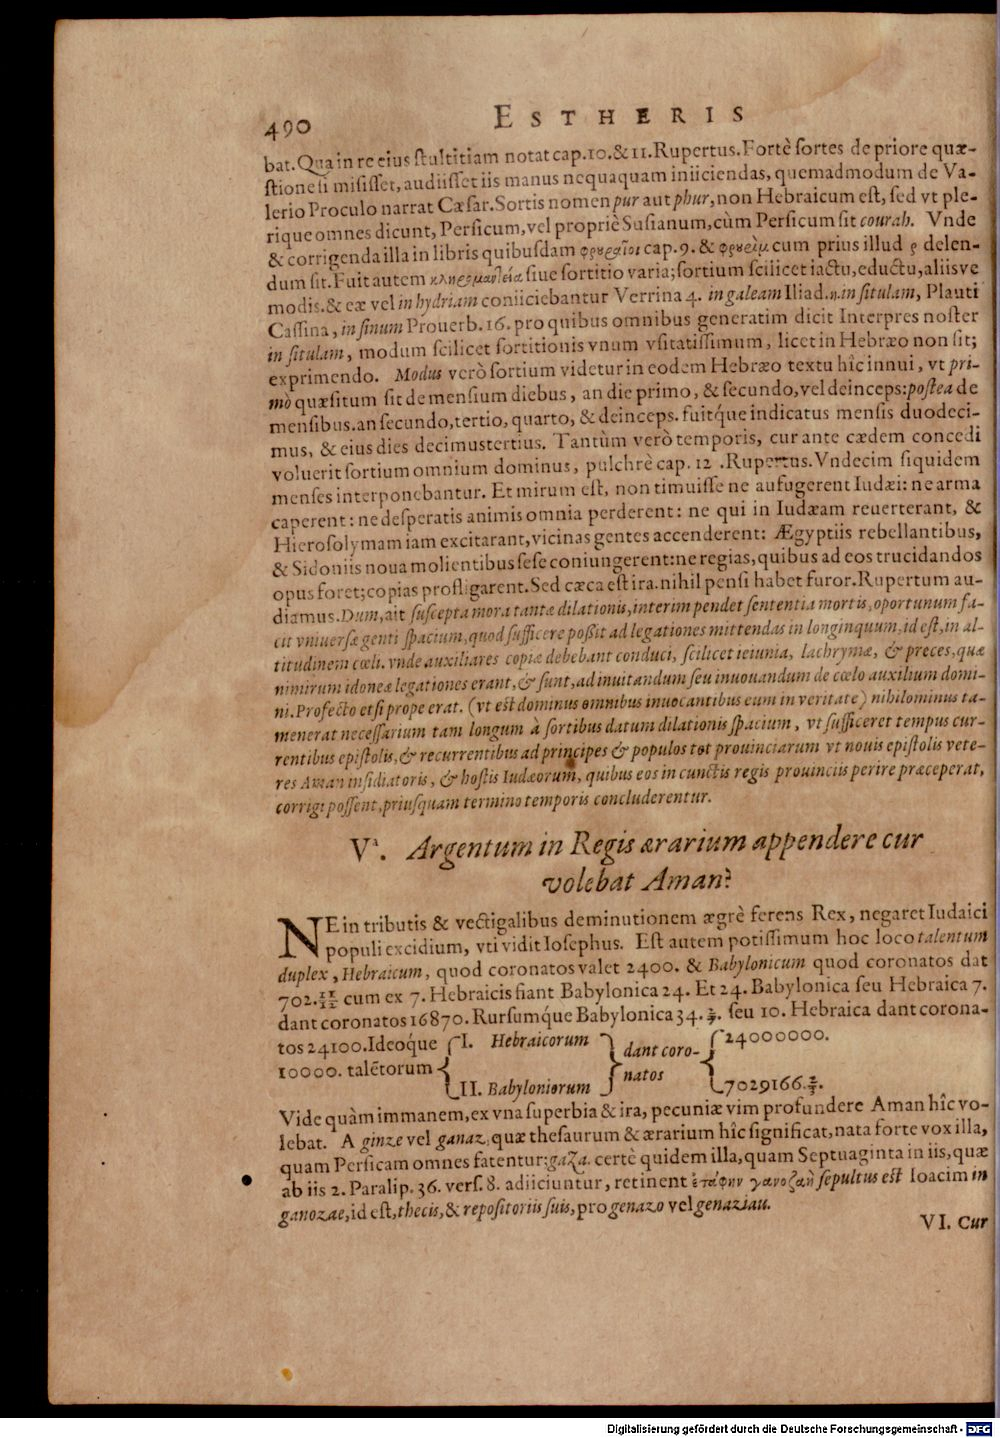 490 ESTHERIS
bat. Qua in re eius stultitiam notat cap. 10. & 11. Rupertus. Fortè sortes de priore quæ-
stione si misisset, audiisset iis manus nequaquam iniiciendas, quemadmodum de Va-
lerio Proculo narrat Cæsar. Sortis nomen pur aut phur, non Hebraicum est, sed vt ple-
rique omnes dicunt, Persicum, vel propriè Susianum, cùm Persicum sit courah. Vnde
& corrigenda illa in libris quibusdam φρουραῖοι cap. 9. & φρουρὶμ cum prius illud ρ delen-
dum sit. Fuit autem κληρομαντεία siue sortitio varia; sortium scilicet iactu, eductu, aliisve
modis. & eæ vel in hydriam coniiciebantur Verrina 4. in galeam Iliad. η. in situlam, Plauti
Cassina, in sinum Prouerb. 16. pro quibus omnibus generatim dicit Interpres noster
in situlam, modum scilicet sortitionis vnum vsitatissimum, licet in Hebræo non sit;
exprimendo. Modus verò sortium videtur in eodem Hebræo textu hîc innui, vt pri-
mò quæsitum sit de mensium diebus, an die primo, & secundo, vel deinceps: postea de
mensibus. an secundo, tertio, quarto, & deinceps. fuitq́ue indicatus mensis duodeci-
mus, & eius dies decimustertius. Tantùm verò temporis, cur ante cædem concedi
voluerit sortium omnium dominus, pulchrè cap. 12 . Rupertus. Vndecim siquidem
menses interponebantur. Et mirum est, non timuisse ne aufugerent Iudæi: ne arma
caperent: ne desperatis animis omnia perderent: ne qui in Iudæam reuerterant, &
Hierosolymam iam excitarant, vicinas gentes accenderent: Ægyptiis rebellantibus,
& Sidoniis noua molientibus sese coniungerent: ne regias, quibus ad eos trucidandos
opus foret; copias profligarent. Sed cæca est ira. nihil pensi habet furor. Rupertum au-
diamus. Dum, ait suscepta mora tantæ dilationis, interim pendet sententia mortis, oportunum fa-
cit vniuersæ genti spacium, quod sufficere poßit ad legationes mittendas in longinquum, id est, in al-
titudinem cœli. vnde auxiliares copiæ debebant conduci, scilicet ieiunia, lachrymæ, & preces, quæ
nimirum idoneæ legationes erant, & sunt, ad inuitandum seu inuouandum de cœlo auxilium domi-
ni. Profecto etsi prope erat. (vt est dominus omnibus inuocantibus eum in veritate) nihilominus ta-
menerat necessarium tam longum à sortibus datum dilationis spacium, vt sufficeret tempus cur-
rentibus epistolis, & recurrentibus ad principes & populos tot prouinciarum vt nouis epistolis vete-
res Aman insidiatoris, & hostis Iudæorum, quibus eos in cunctis regis prouinciis perire præceperat,
corrigi possent, priusquam termino temporis concluderentur.
Vª. Argentum in Regis ærarium appendere cur
volebat Aman?
NE in tributis & vectigalibus deminutionem ægrè ferens Rex, negaret Iudaici
populi excidium, vti vidit Iosephus. Est autem potissimum hoc loco talentum
duplex, Hebraicum, quod coronatos valet 2400. & Babylonicum quod coronatos dat
702. cum ex 7. Hebraicis fiant Babylonica 24. Et 24. Babylonica seu Hebraica 7.
dant coronatos 16870. Rursumq́ue Babylonica 34. 2/7. seu 10. Hebraica dant corona-
tos 24100. Ideoq́ue { I. Hebraicorum } dant coro- { 24000000.
10000. talẽtorum { II. Babyloniorum } natos { 7029166. 2/3.
Vide quàm immanem, ex vna superbia & ira, pecuniæ vim profundere Aman hîc vo-
lebat. A ginze vel ganaz, quæ thesaurum & ærarium hîc significat, nata forte vox illa,
quam Persicam omnes fatentur: gaza. certè quidem illa, quam Septuaginta in iis, quæ
ab iis 2. Paralip. 36. vers. 8. adiiciuntur, retinent ἐτάφην γανοζαὴ sepultus est Ioacim in
ganozae, id est, thecis, & repositoriis suis, pro genazo vel genaziau.
VI. Cur
Digitalisierung gefördert durch die Deutsche Forschungsgemeinschaft - DFG